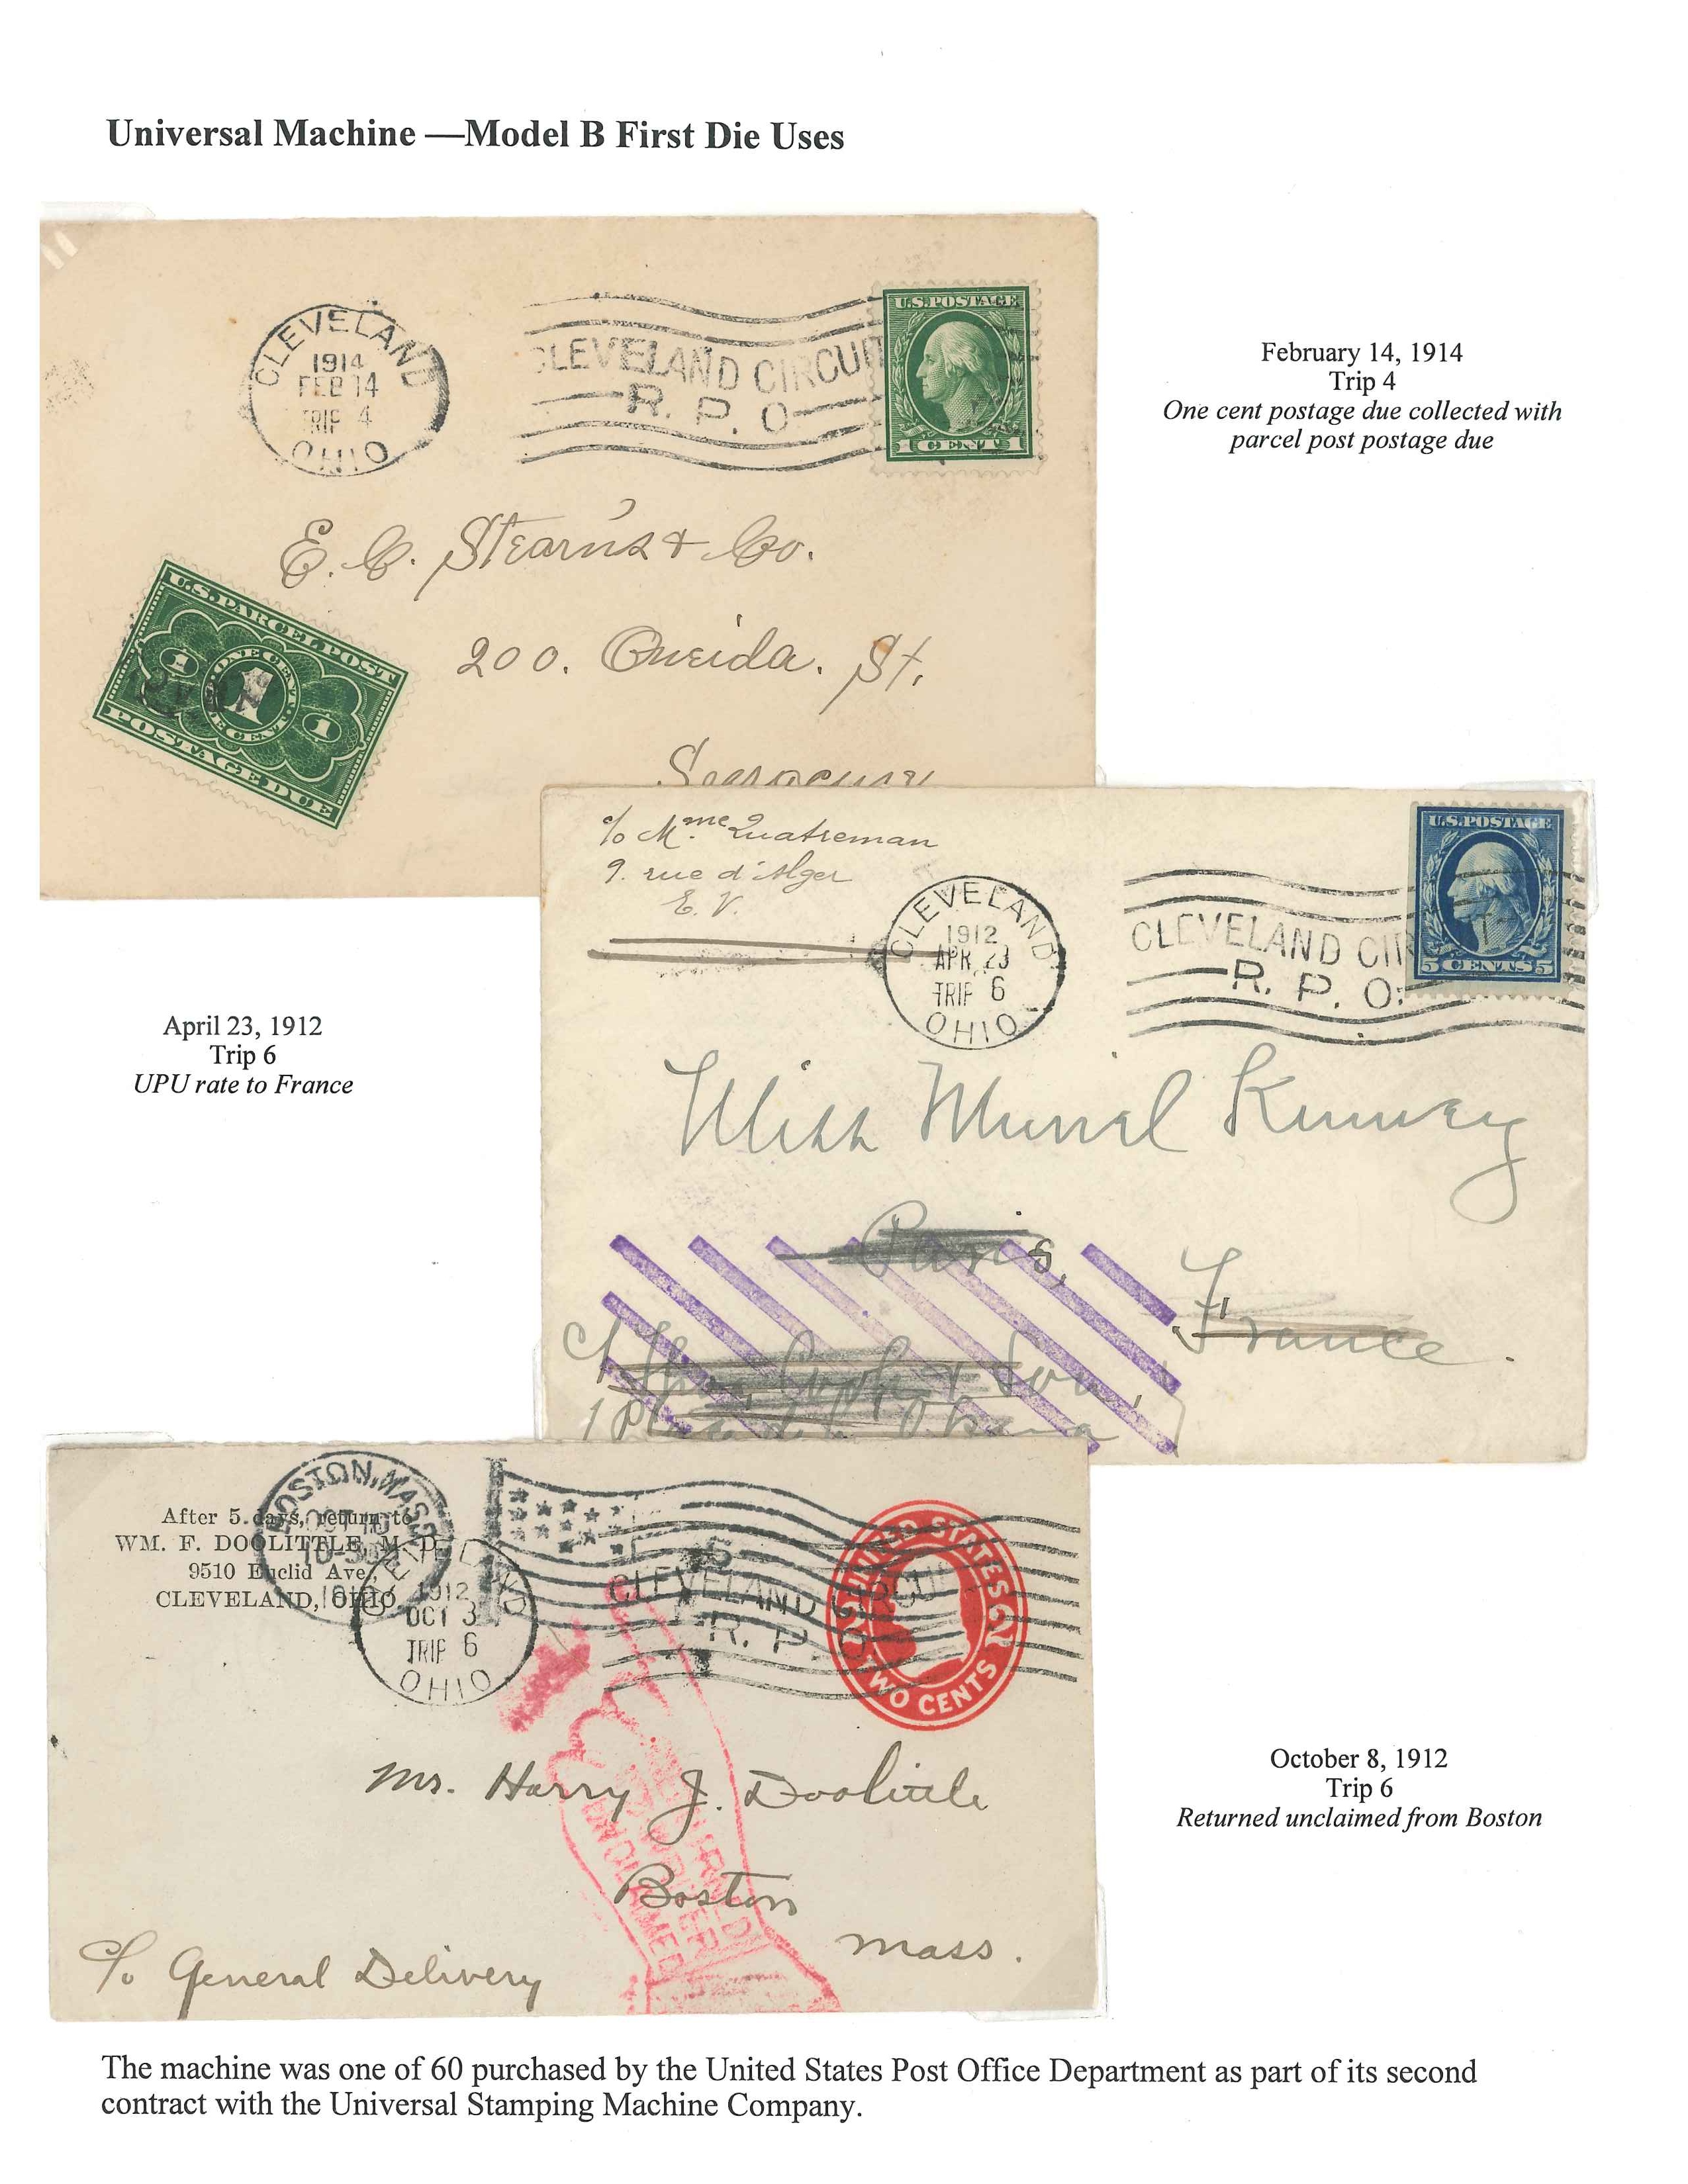 Universal Machine —Model B First Die Uses
CLEVELAND
1914
FEB 14
TRIP 4
OHIO
CLEVELAND CIRCUIT
R. P. O.
U.S. POSTAGE
1 CENT 1
February 14, 1914
Trip 4
One cent postage due collected with
parcel post postage due
E. C. Stearns & Co.
200. Oneida. St.
U.S. PARCEL POST
ONE CENT
1 1 1
ONE CENT
POSTAGE DUE
c/o Mme Quatreman
9. rue d'Alger
E. V.
CLEVELAND
1912
APR 23
TRIP 6
OHIO
CLEVELAND CIR
R. P. O.
U.S. POSTAGE
5 CENTS 5
April 23, 1912
Trip 6
UPU rate to France
Miss Muriel
Paris,
France.
BOSTON, MASS
After 5 days, return to
WM. F. DOOLITTLE, M. D.
9510 Euclid Ave.,
CLEVELAND, OHIO
1912
OCT 3
TRIP 6
OHIO
CLEVELAND CIRCUI
R. P. O
UNITED STATES
TWO CENTS
October 8, 1912
Trip 6
Returned unclaimed from Boston
Mr. Harry J. Doolittle
Boston
Mass.
c/o General Delivery
The machine was one of 60 purchased by the United States Post Office Department as part of its second
contract with the Universal Stamping Machine Company.